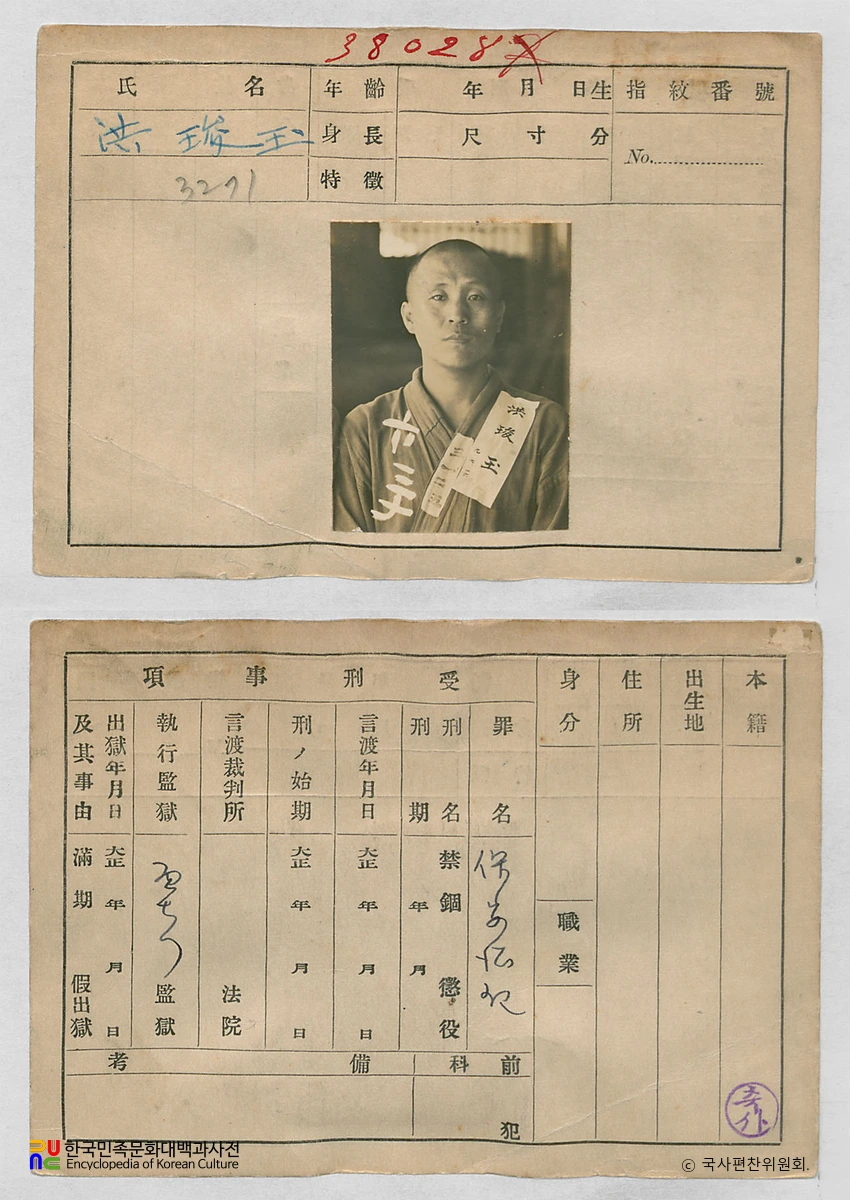 38028
氏名
洪 琔玉
3271
年齡
年 月 日生
身長
尺 寸 分
特徵
指紋番號
No.
洪
玉
本籍
出生地
住所
身分
職業
受刑事項
罪名
保安法犯
刑名
禁錮 懲役
刑期
年 月
言渡年月日
大正 年 月 日
刑ノ始期
大正 年 月 日
言渡裁判所
法院
執行監獄
監獄
出獄年月日
及其事由
大正 年 月 日
滿期 假出獄
前科
犯
備考
촉사
한국민족문화대백과사전
Encyclopedia of Korean Culture
© 국사편찬위원회.